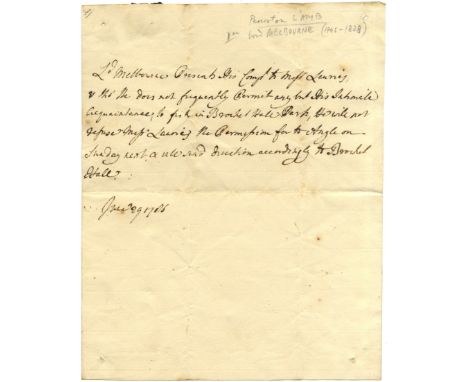 Peniston LAMB
Lord MELBOURNE (1745-1828)
Ld Melbourne Presents His Compts to Messrs Lewis,
& tho' He does not frequently Permit any but His Intimate
Acquaintance, to fish in Brocket Hall Park, He will not
refuse Messrs Lewis, the Permission for to Angle on
Sunday next & will send direction accordingly to Brocket
Hall.
1786